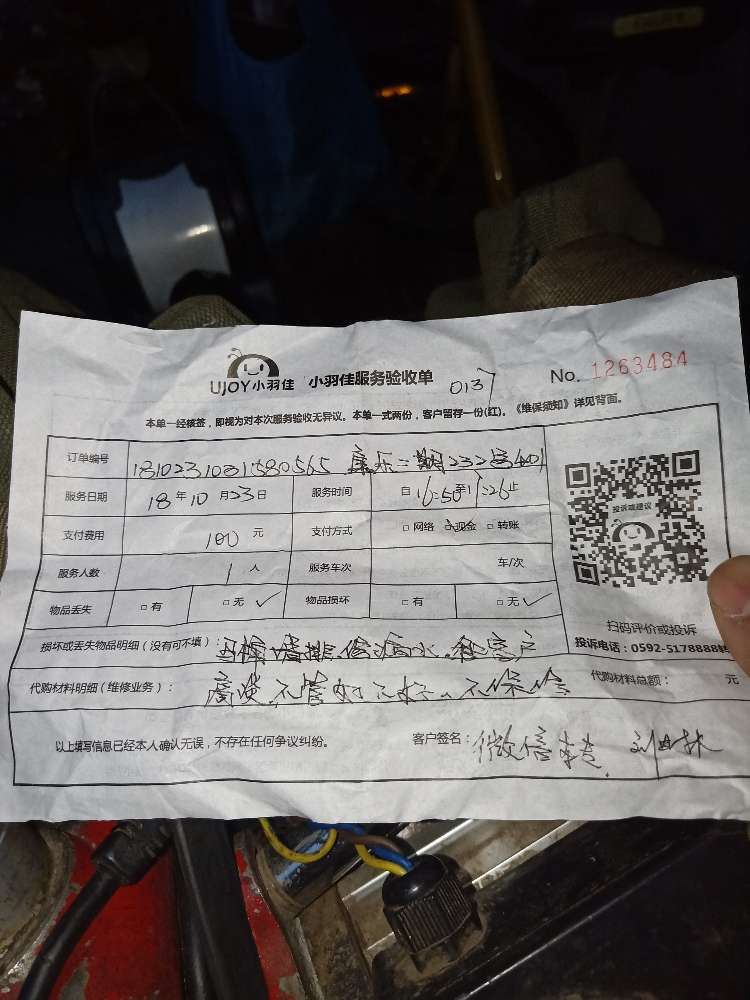 UJOY小羽佳 小羽佳服务验收单 0137 No. 1263484
本单一经核签，即视为对本次服务验收无异议。本单一式两份，客户留存一份(红)。《维保须知》详见背面。
订单编号 1810231031580565 康乐二期232号401
服务日期 18年10月23日 服务时间 自16:50至17:26止
支付费用 100元 支付方式 □网络 □现金 □转账
服务人数 1人 服务车次 车/次
物品丢失 □有 □无✓ 物品损坏 □有 □无✓
投诉或建议
扫码评价或投诉
投诉电话：0592-5178888转
损坏或丢失物品明细（没有可不填）： 漏水 客户
代购材料明细（维修业务）： 不管好 不 不保 代购材料总额： 元
以上填写信息已经本人确认无误，不存在任何争议纠纷。 客户签名： 微信 刘